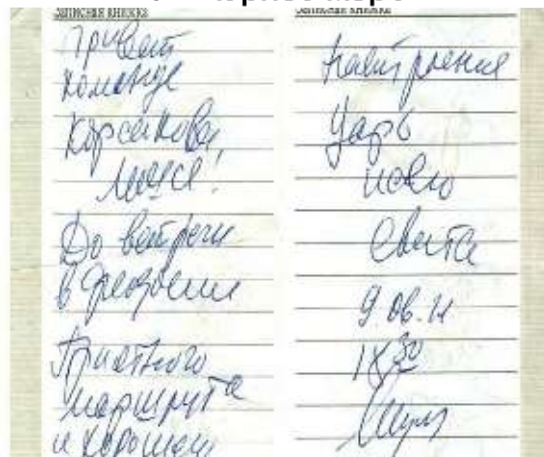 ЗАПИСНАЯ КНИЖКА
Привет
команде
Корсакова
До встречи
в Феодосии
Приятного
маршрута
и хорошего
ЗАПИСНАЯ КНИЖКА
настроения
Царь
Свита
18 30